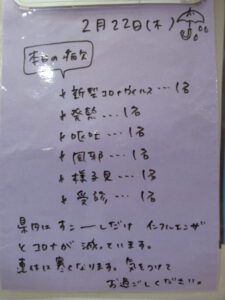 2月22日(木)
本日の病欠
新型コロナウイルス…1名
発熱…1名
嘔吐…1名
風邪…1名
様子見…1名
受診…1名
県内はすこーしだけ インフルエンザ
とコロナが減っています。
寒くなります。気をつけて
お過ごしください。